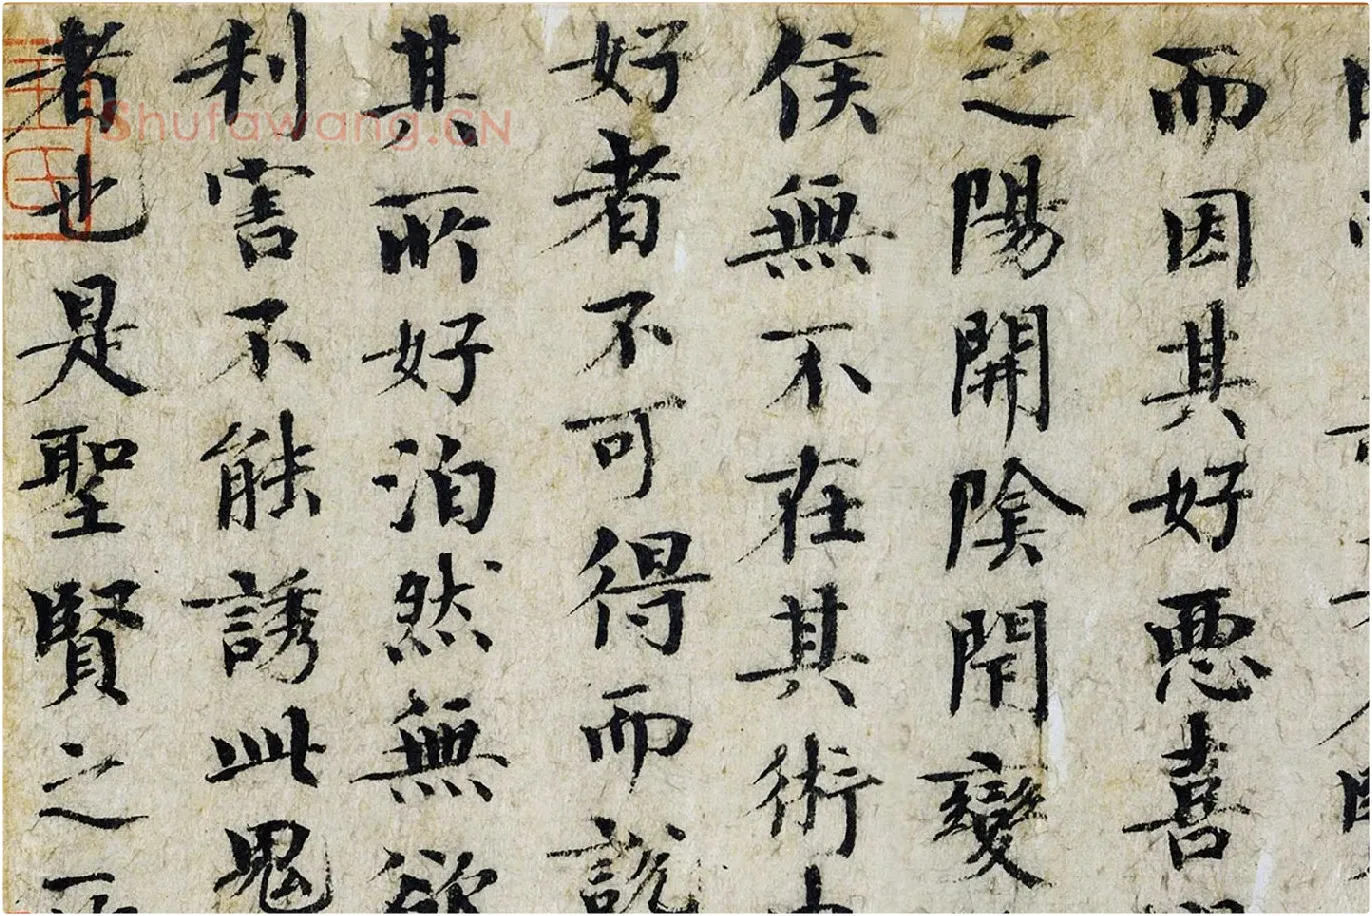 而因其好惡喜
之陽開陰閉變
侯無不在其術中
好者不可得而說
其所好泊然無欲
利害不能誘此鬼
者也是聖賢之所
Shufawang.CN